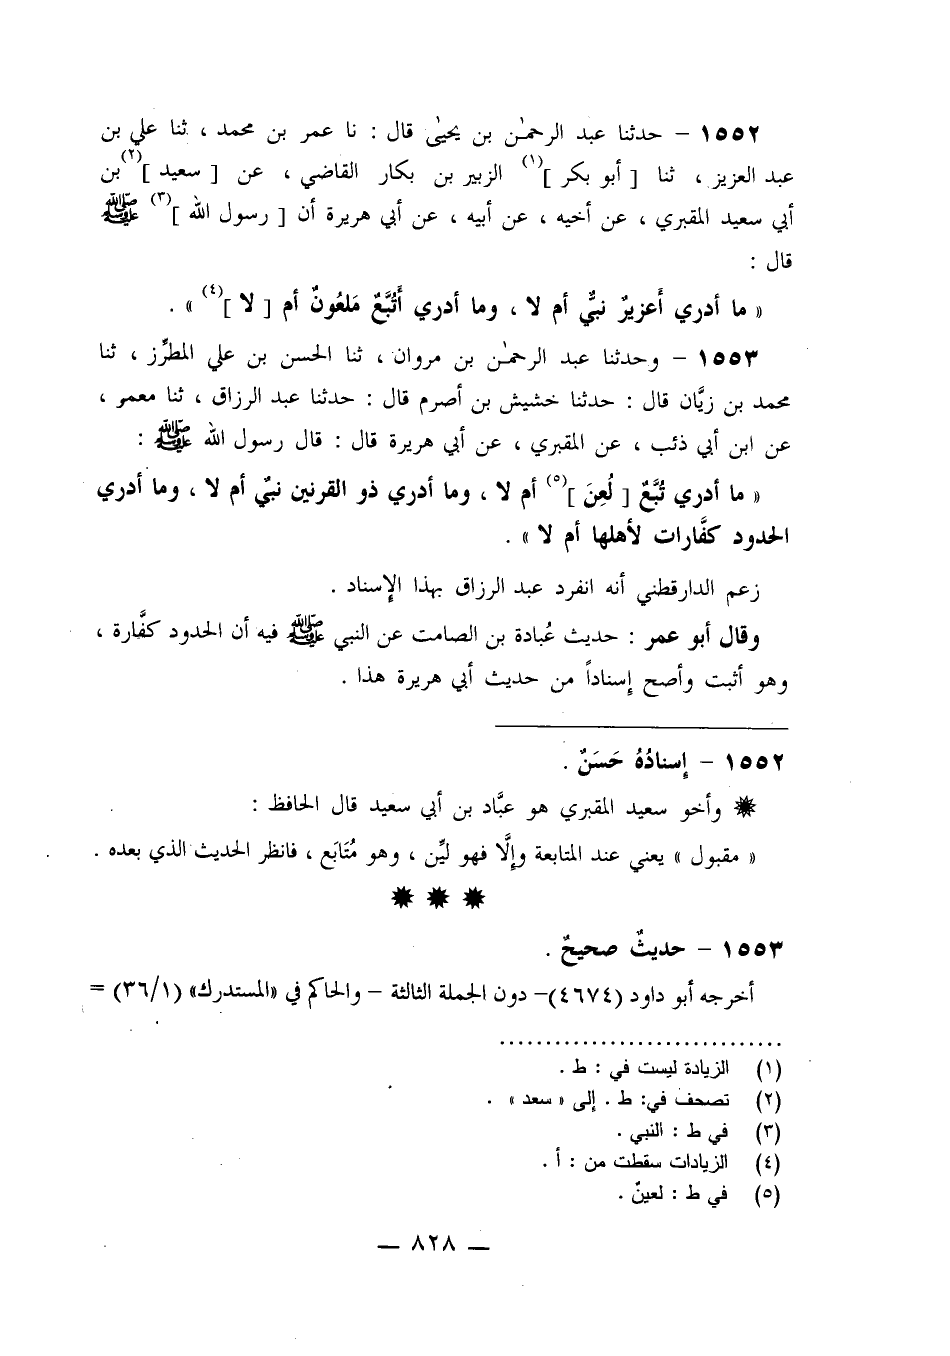 ١٥٥٢ – حدثنا عبد الرحمٰن بن يحيىٰ قال : نا عمر بن محمد ، ثنا علي بن
عبد العزيز ، ثنا [ أبو بكر ](١) الزبير بن بكار القاضي ، عن [ سعيد ](٢) بن
أبي سعيد المقبري ، عن أخيه ، عن أبيه ، عن أبي هريرة أن [ رسول الله ](٣) ﷺ
قال :
« ما أدري أَعزيرٌ نبيٌّ أم لا ، وما أدري أَتُبَّعٌ مَلعُونٌ أم [ لا ](٤) » .
١٥٥٣ – وحدثنا عبد الرحمٰن بن مروان ، ثنا الحسن بن علي المطرِّز ، ثنا
محمد بن زيَّان قال : حدثنا خشيش بن أصرم قال : حدثنا عبد الرزاق ، ثنا معمر ،
عن ابن أبي ذئب ، عن المقبري ، عن أبي هريرة قال : قال رسول الله ﷺ :
« ما أدري تُبَّعٌ [ لُعِنَ ](٥) أم لا ، وما أدري ذو القرنين نبيٌ أم لا ، وما أدري
الحدود كفَّارات لأهلها أم لا » .
زعم الدارقطني أنه انفرد عبد الرزاق بهذا الإسناد .
وقال أبو عمر : حديث عُبادة بن الصامت عن النبي ﷺ فيه أن الحدود كفَّارة ،
وهو أثبت وأصح إسناداً من حديث أبي هريرة هذا .
١٥٥٢ – إسنادُهُ حَسَنٌ .
✹ وأخو سعيد المقبري هو عبَّاد بن أبي سعيد قال الحافظ :
« مقبول » يعني عند المتابعة وإلَّا فهو ليِّن ، وهو مُتَابَع ، فانظر الحديث الذي بعده .
✹ ✹ ✹
١٥٥٣ – حديثٌ صحيحٌ .
أخرجه أبو داود (٤٦٧٤)– دون الجملة الثالثة – والحاكم في «المستدرك» (٣٦/١) =
(١) الزيادة ليست في : ط .
(٢) تصحف في: ط . إلى « سعد » .
(٣) في ط : النبي .
(٤) الزيادات سقطت من : أ .
(٥) في ط : لعينٌ .
— ٨٢٨ —